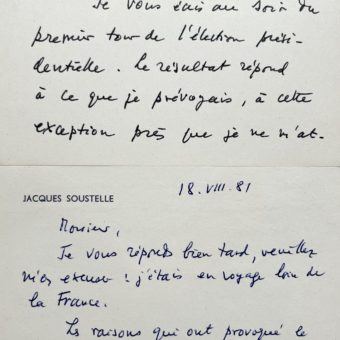 Je vous écris au soir du
premier tour de l'élection prési-
dentielle. Le résultat répond
à ce que je prévoyais, à cette
exception près que je ne m'at-
JACQUES SOUSTELLE
18.VIII.81
Monsieur,
Je vous réponds bien tard, veuillez
m'en excuser : j'étais en voyage loin de
la France.
Les raisons qui ont provoqué le